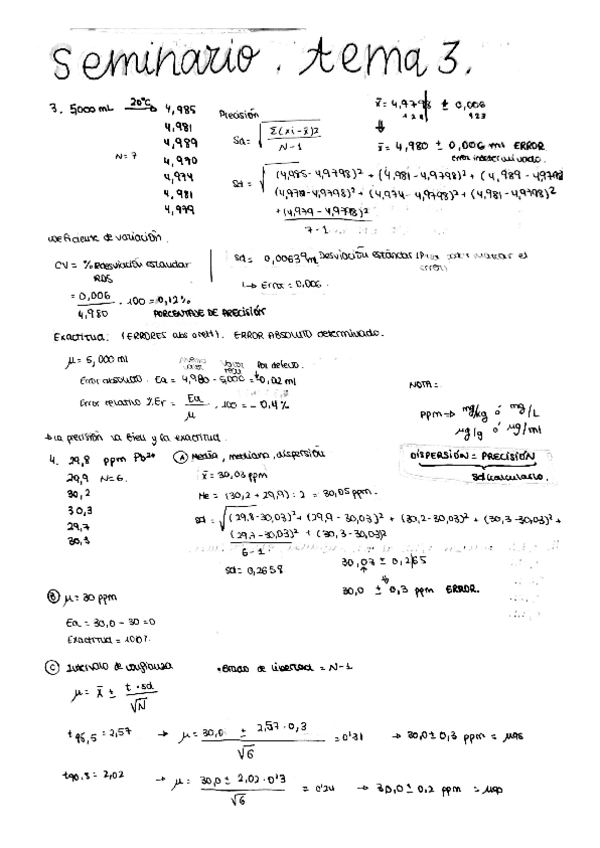 Seminario. tema 3.
3. 5000 mL 20°C 4,985
4,981
4,989
N=7 4,970
4,974
4,981
4,979
Precisión
Sd= √ Σ(xi-x̄)2 / N-1
x̄= 4,9798 ± 0,006
x̄= 4,980 ± 0,006 ml ERROR
error indeterminado.
Sd = √ (4,985-4,9798)² + (4,981-4,9798)² + (4,989-4,9798
(4,970-4,9798)² + (4,974-4,9798)² + (4,981-4,9798)²
+ (4,979-4,9798)²
7-1
coeficiente de variación.
CV = % Desviación estandar
RDS
= 0,006 / 4,980 · 100 = 0,12%
PORCENTAJE DE PRECISIÓN
sd= 0,00639 Desviación estándar
↳ Error = 0,006
Exactitud: (ERRORES abs o relt). ERROR ABSOLUTO determinado.
μ= 5,000 ml Por defecto.
Error absoluto. Ea = 4,980 - 5,000 = 0,02 ml
Error relativo %Er = Ea / μ · 100 = -0,4%
NOTA:
ppm ⇒ mg/kg ó mg/L
μg/g ó μg/ml
→ la precisión va bien y la exactitud.
DISPERSIÓN = PRECISIÓN
sd calcularlo.
4. 29,8 ppm Pb2+
29,9 N=6.
30,2
30,3
29,7
30,3
A Media, mediana, dispersión
x̄= 30,03 ppm
Me = (30,2 + 29,9) : 2 = 30,05 ppm.
sd = √ (29,8-30,03)² + (29,9-30,03)² + (30,2-30,03)² + (30,3-30,03)² +
(29,7-30,03)² + (30,3-30,03)2
6-1
sd= 0,2658
30,03 ± 0,265
30,0 ± 0,3 ppm ERROR.
B μ= 30 ppm
Ea = 30,0 - 30 = 0
Exactitud = 100%
C Intervalo de confianza • Grado de libertad = N-1
μ= x̄ ± t·sd / √N
t95,5 = 2,57 → μ= 30,0 ± 2,57·0,3 / √6 = 0'31 → 30,0 ± 0,3 ppm = μ95
t90,5 = 2,02 → μ= 30,0 ± 2,02·0'3 / √6 = 0'24 → 30,0 ± 0,2 ppm = μ90